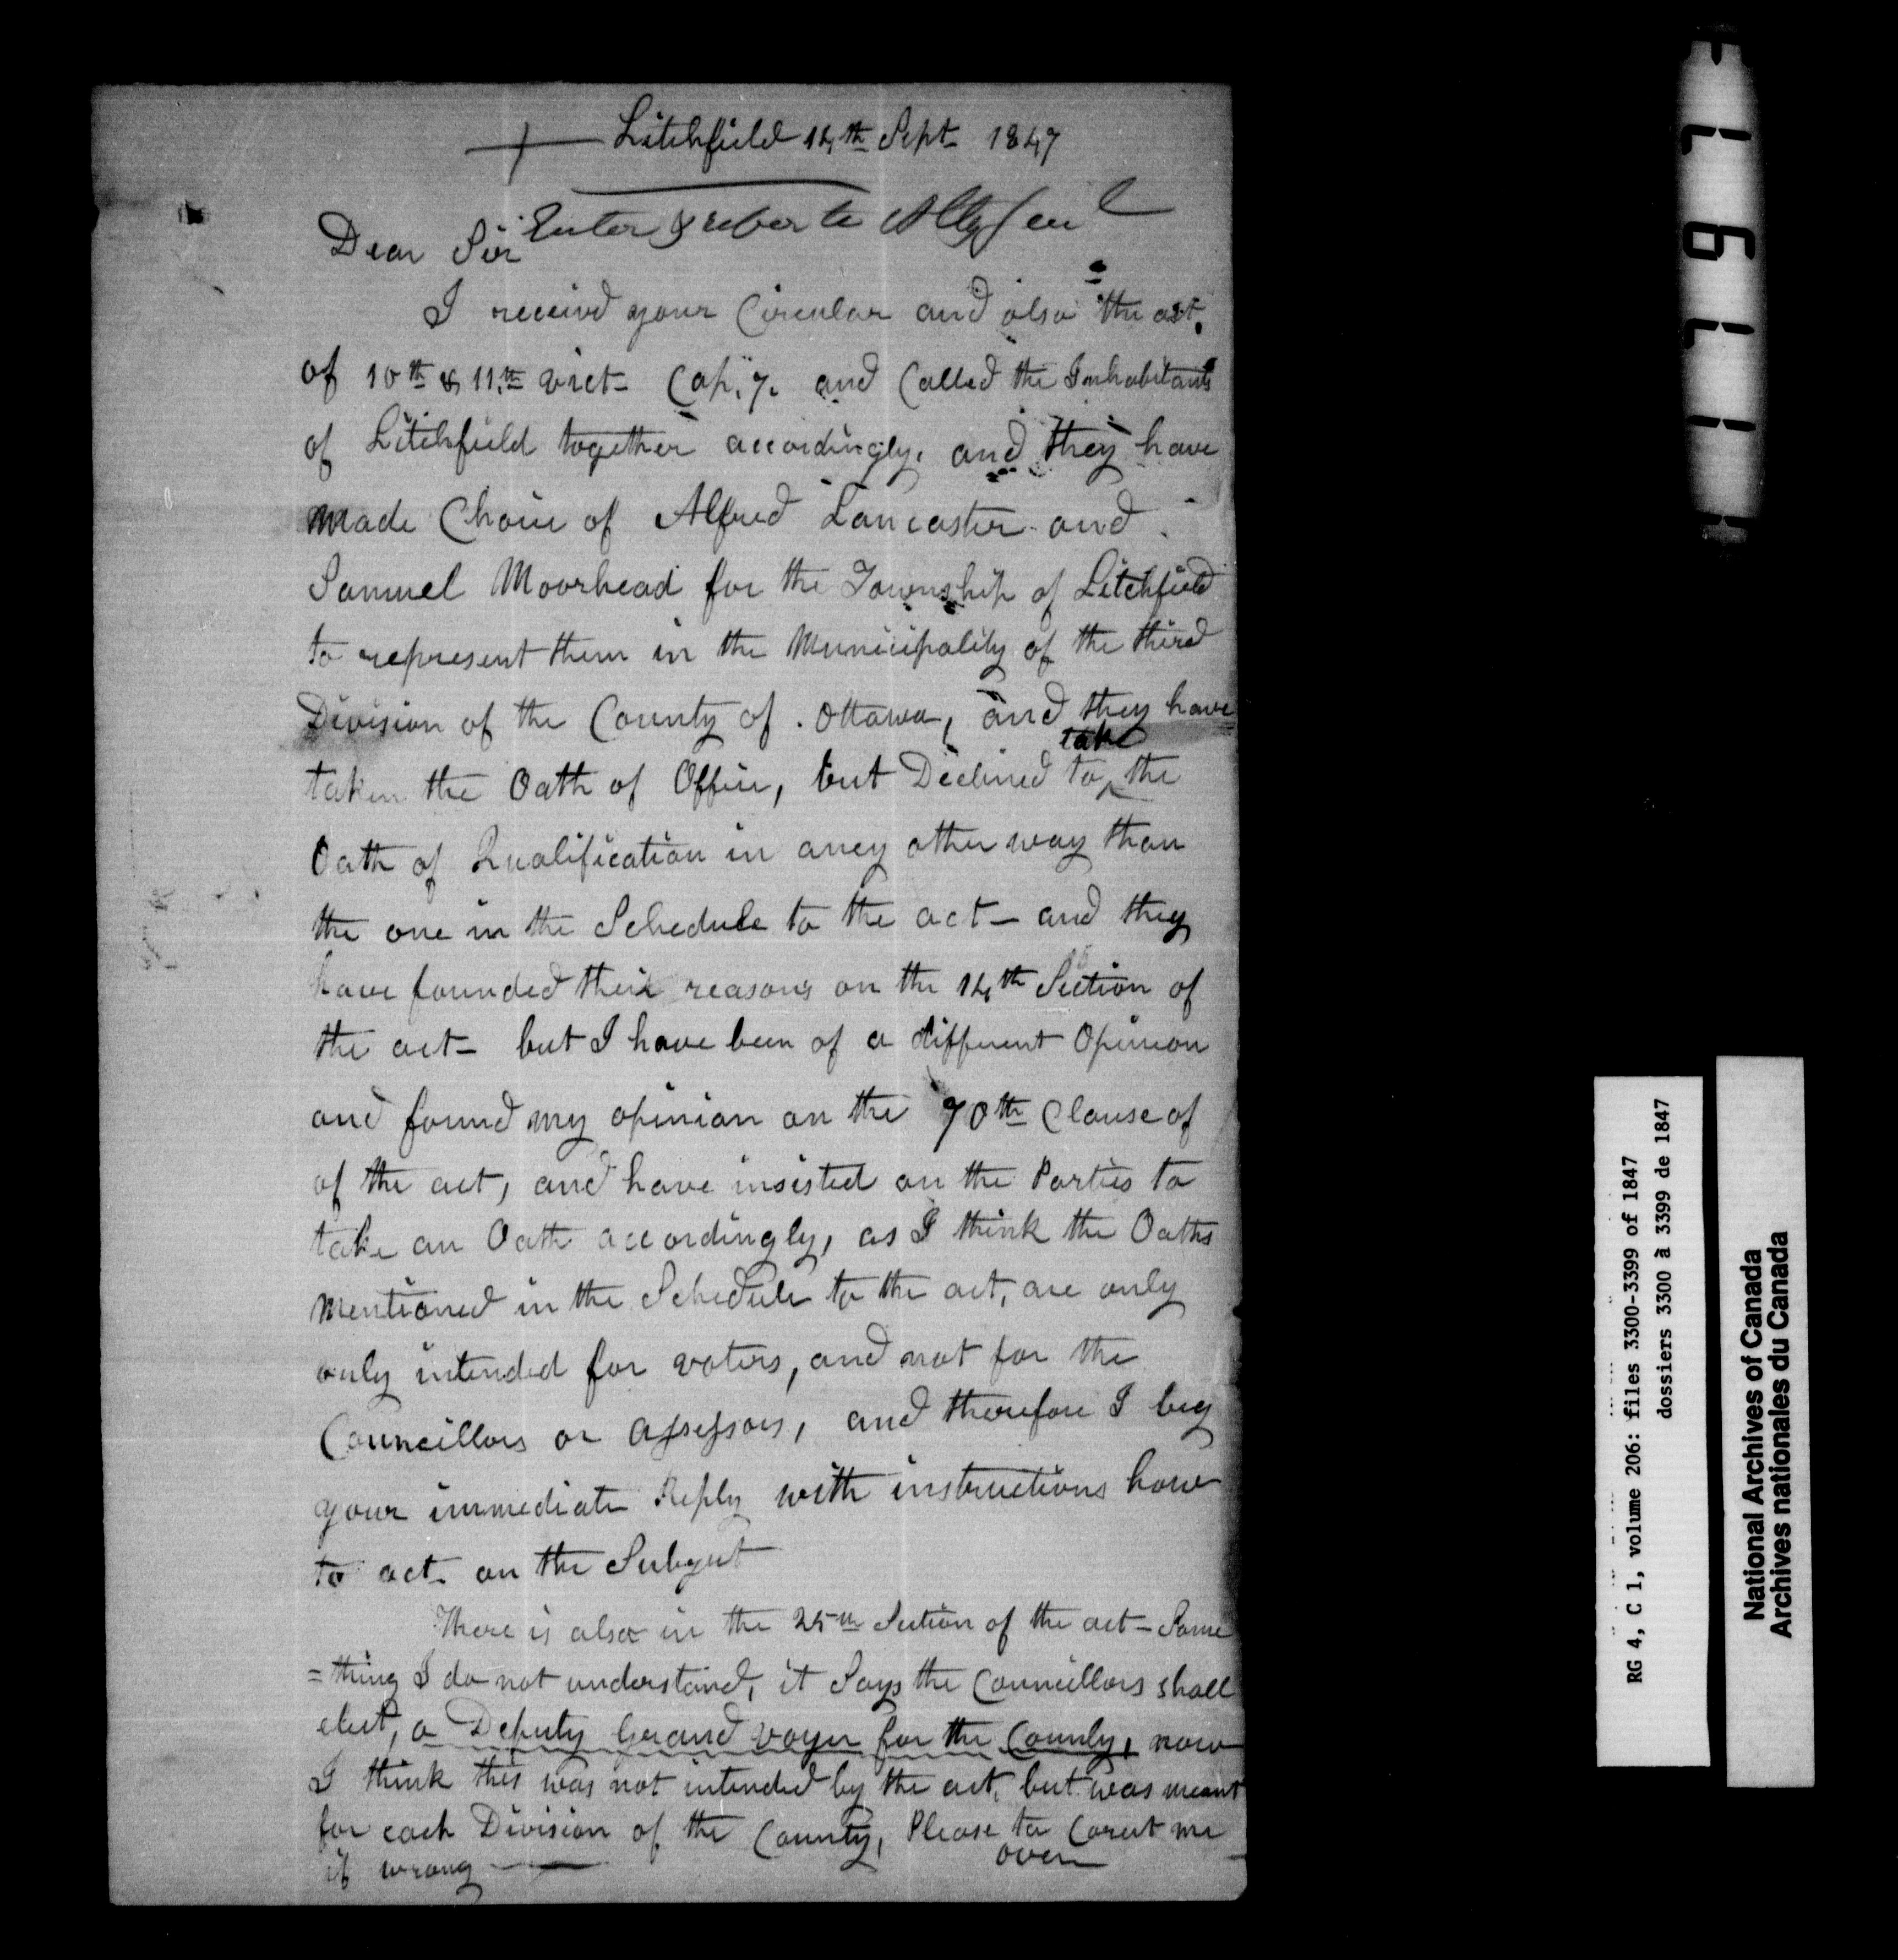 Litchfield 14th Sept 1847
Enter & refer to Atty Genl
Dear Sir
I receivd your Circular and also the act
of 10th & 11th Vict- Cap. 7. and Called the Inhabitants
of Litchfield together accordingly. and they have
made Choice of Alfred Lancaster and
Samuel Moorhead for the Township of Litchfield
to represent them in the Municipality of the third
Division of the County of Ottawa, and they have
taken the Oath of Office, but Declined to take the
Oath of Qualification in aney other way than
the one in the Schedule to the act- and they
have founded their reasons on the 14th Section of
the act- but I have been of a different Opinion
and found my opinion on the 70th Clause of
of the act, and have insisted on the Parties to
take an Oath accordingly, as I think the Oaths
mentioned in the Schedule to the act, are only
only intended for voters, and not for the
Councillors or assessors, and therefore I beg
your immediate Reply with instructions how
to act on the Subject
There is also in the 25th Section of the act- Some
=thing I do not understand, it Says the Councillors shall
elect, a Deputy Grand Voyer for the County, now
I think this was not intended by the act, but was meant
for each Division of the County, Please to Corect me
if wrong
over
1791
RG 4, C 1, volume 206: files 3300-3399 of 1847
dossiers 3300 à 3399 de 1847
National Archives of Canada
Archives nationales du Canada